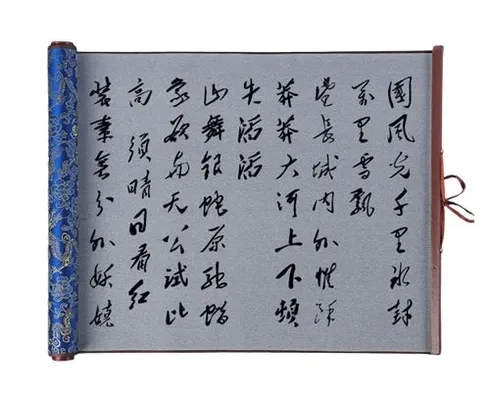 國風光千里冰封
万里雪飄
望長城内外惟餘
莽莽大河上下頓
失滔滔
山舞銀蛇原馳蠟
象欲与天公試比
高 須晴日看紅
裝素裹分外妖嬈